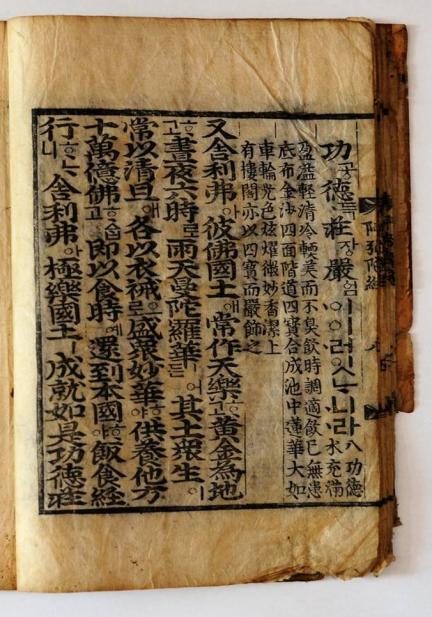 阿彌陀經
功공德득莊장嚴엄이이러잇ᄂᆞ니라 八功德水充滿
盈溢輕清冷軟美而不臭飮時調適飮已無患
底布金沙四面階道四寶合成池中蓮華大如
車輪光色炫耀微妙香潔上
有樓閣亦以四寶而嚴飾之
又舍利弗아彼佛國土애常作天樂ᄒᆞ고黃金為地
ᄒᆞ고晝夜六時로雨天曼陀羅華ᄒᆞ거든其土衆生이
常以清旦애各以衣裓로盛衆妙華ᄒᆞ야供養他方
十萬億佛ᄒᆞ고即以食時예還到本國ᄒᆞ야飯食經
行ᄒᆞᄂᆞ니舍利弗아極樂國土ㅣ成就如是功德莊